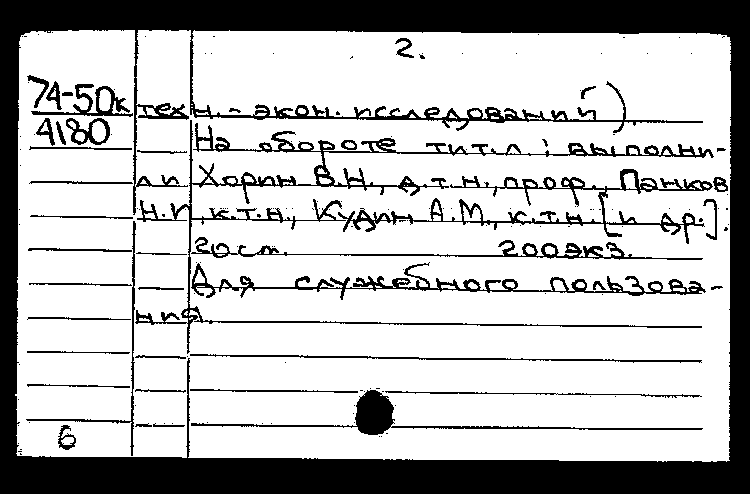 2.
74-50к техн.-экон. исследований).
4180 На обороте тит.л : выполни-
ли Хорин В.Н., д.т.н., проф., Панков
Н.И, к.т.н., Кудин А.М., к.т.н. [и др.].
20 ст. 200 экз.
Для служебного пользова-
ния.
6